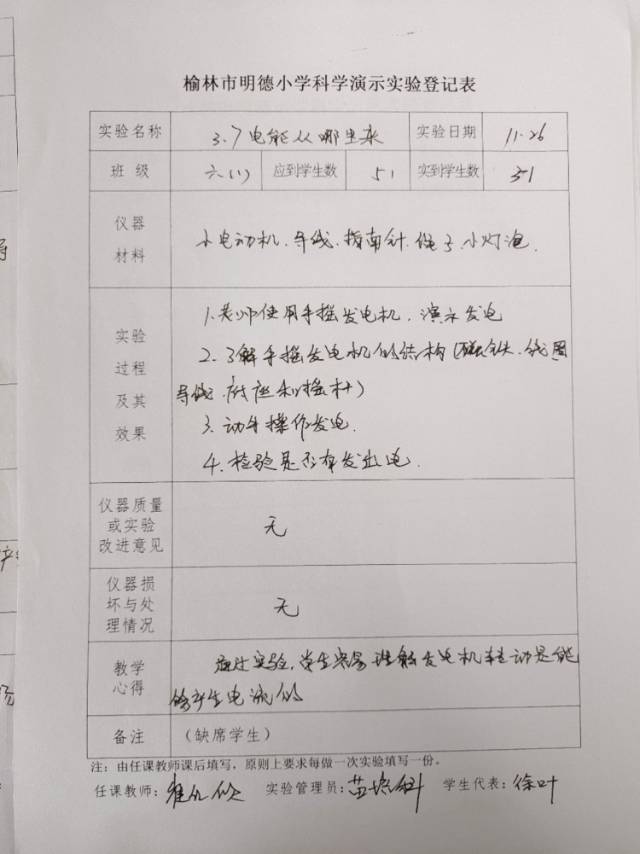 榆林市明德小学科学演示实验登记表
实验名称 3.7电能从哪里来 实验日期 11.26
班 级 六(1) 应到学生数 51 实到学生数 51
仪器
材料
小电动机、导线、指南针、绳子、小灯泡.
实验
过程
及其
效果
1.老师使用手摇发电机,演示发电
2.了解手摇发电机的结构(磁铁、线圈
导线、底座和摇杆)
3.动手操作发电.
4.检验是否有发出电.
仪器质量
或实验
改进意见
无
仪器损
坏与处
理情况
无
教学
心得
通过实验,学生容易理解发电机转动是能
够产生电流的
备注 (缺席学生)
注:由任课教师课后填写,原则上要求每做一次实验填写一份。
任课教师: 实验管理员: 学生代表:徐叶